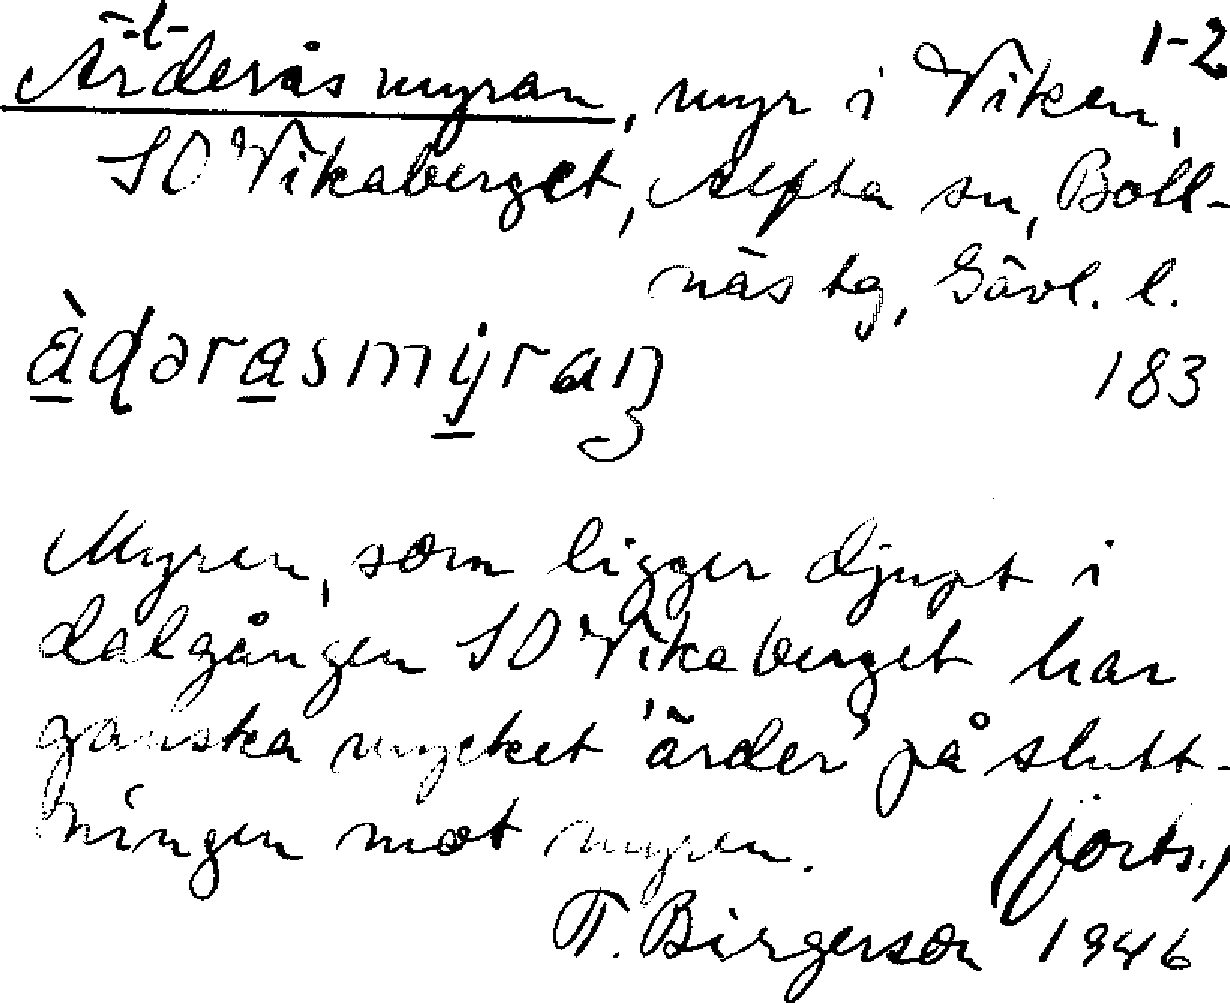 1-2
-l-
Ärderåsmyran, myr i Viken,
SO Vikaberget, Alfta sn, Boll-
näs tg, Gävl. l.
àdərasmyran 183
Myren, som ligger djupt i
dalgången SO Vikaberget har
ganska mycket 'ärder' på slutt-
ningen mot myren. (forts.)
T. Birgerson 1946